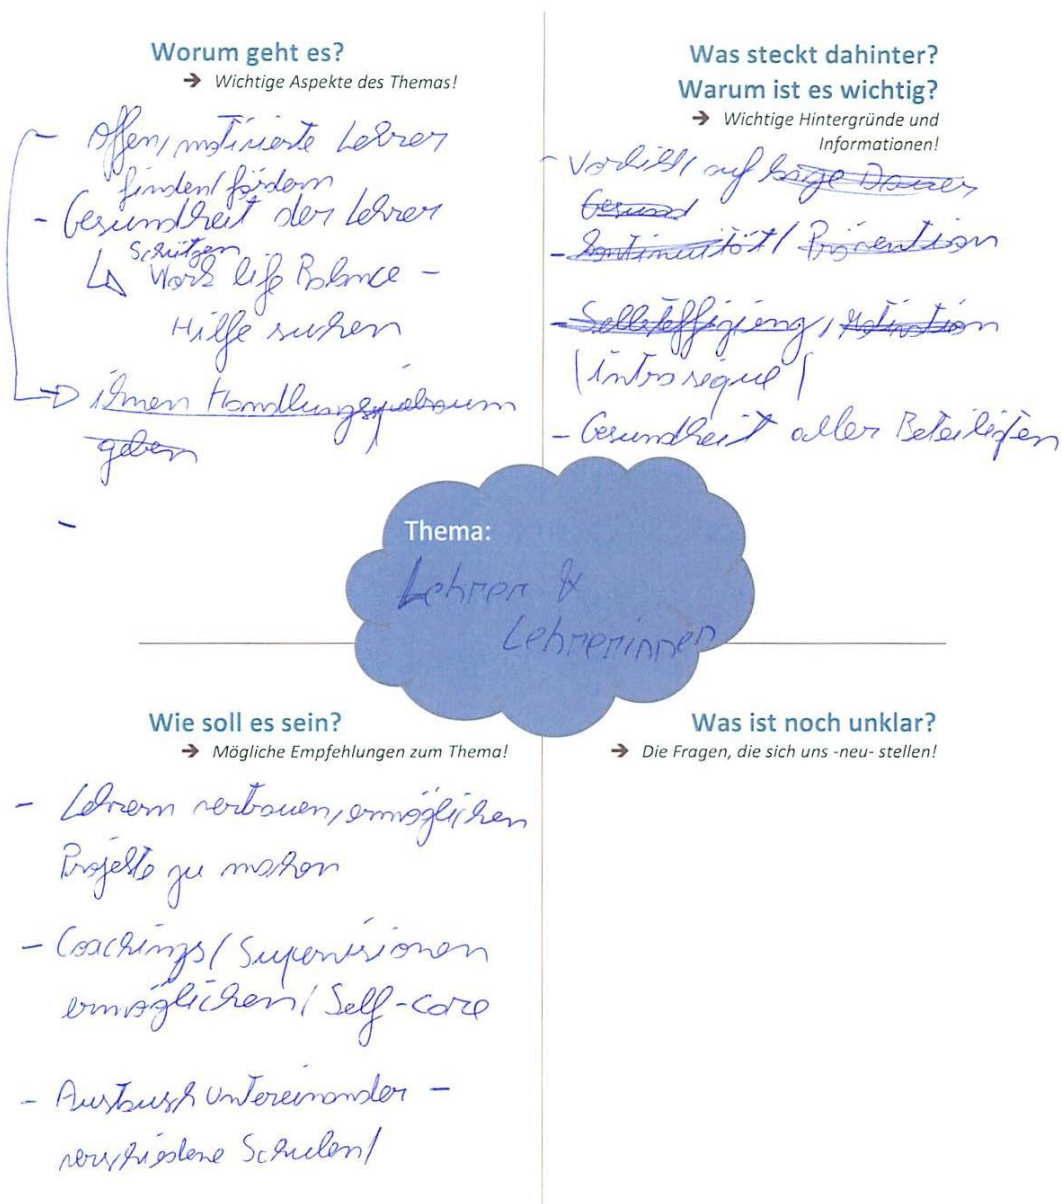 Worum geht es?
→ Wichtige Aspekte des Themas!
- Offen, motivierte Lehrer
finden/fördern
- Gesundheit der Lehrer
schützen
↳ Work life Balance -
Hilfe suchen
→ ihnen Handlungsspielraum
geben
-
Was steckt dahinter?
Warum ist es wichtig?
→ Wichtige Hintergründe und
Informationen!
- Vorbild, auf lange Dauer
Gesund
- Kontinuität / Prävention
- Selbsteffizienz, Motivation
(intrinsèque)
- Gesundheit aller Beteiligten
Thema:
Lehrer &
Lehrerinnen
Wie soll es sein?
→ Mögliche Empfehlungen zum Thema!
- Lehrern vertrauen, ermöglichen
Projekte zu machen
- Coachings / Supervisionen
ermöglichen / Self-care
- Austausch untereinander -
verschiedene Schulen/
Was ist noch unklar?
→ Die Fragen, die sich uns -neu- stellen!